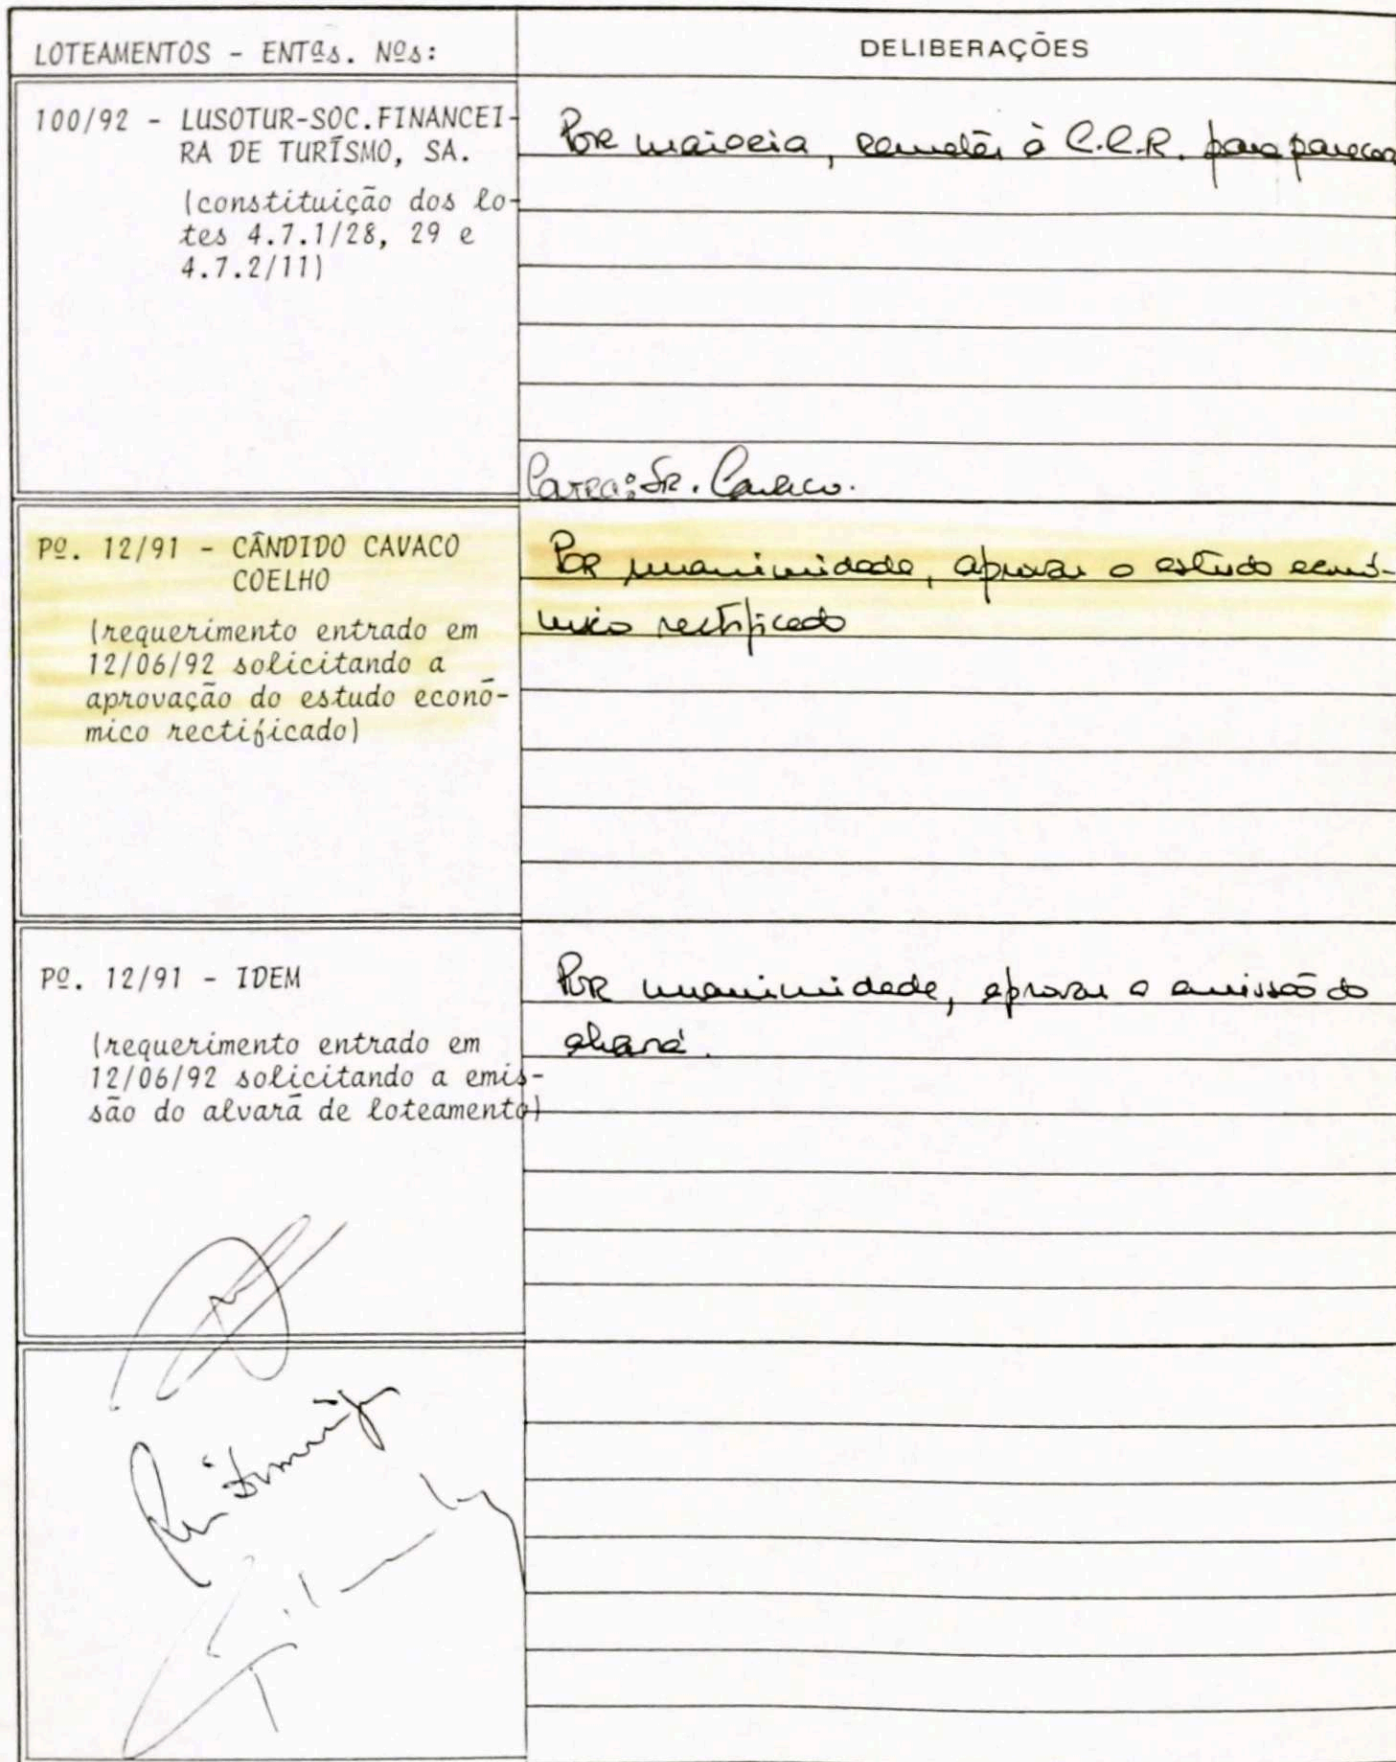 LOTEAMENTOS - ENTªs. Nºs:
DELIBERAÇÕES
100/92 - LUSOTUR-SOC.FINANCEI-
RA DE TURÍSMO, SA.
(constituição dos lo-
tes 4.7.1/28, 29 e
4.7.2/11)
Por maioria, remeter à C.C.R. para parecer
Contra: Sr. Cavaco.
Pº. 12/91 - CÂNDIDO CAVACO
COELHO
(requerimento entrado em
12/06/92 solicitando a
aprovação do estudo econó-
mico rectificado)
Por unanimidade, aprovar o estudo econó-
mico rectificado
Pº. 12/91 - IDEM
(requerimento entrado em
12/06/92 solicitando a emis-
são do alvará de loteamento)
Por unanimidade, aprovar a emissão do
alvará.